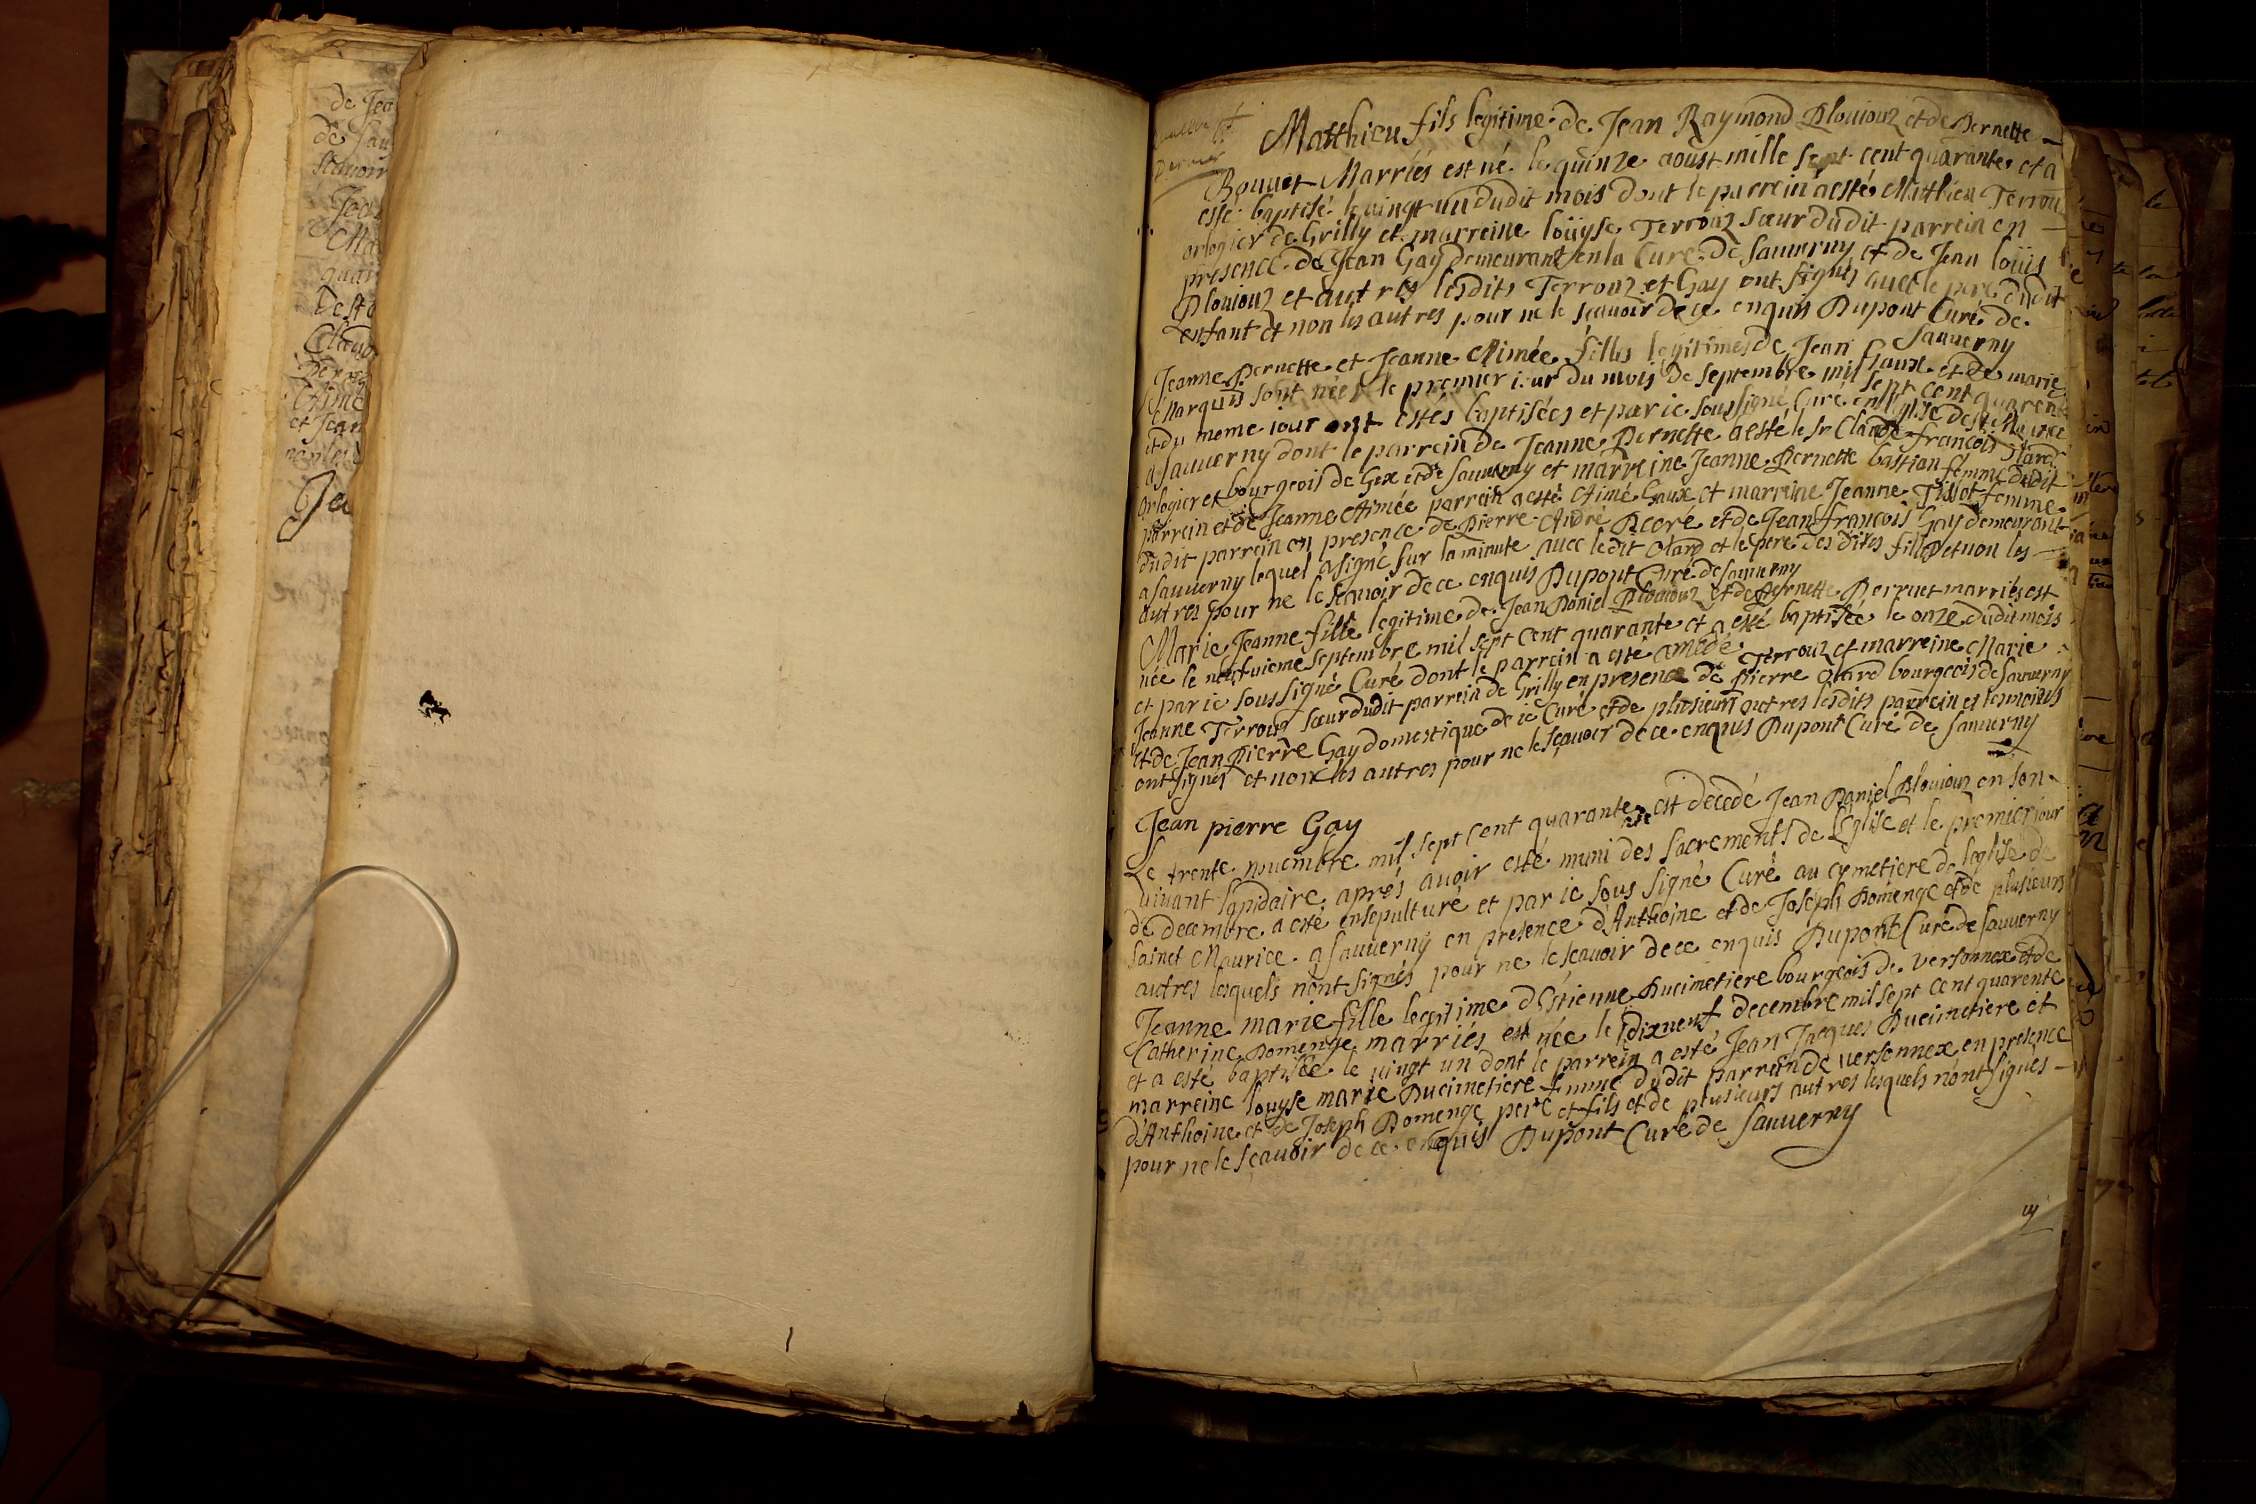 de Jea
de Sau
Jea
Ma
quar
Claud
Aimé
et Jean
Jea
feuillet
dernier
Matthieu fils legitime de Jean Raymond Plouiouz et de Pernette
Bouuet Marriés est né le quinze aoust mille sept cent quarante et a
esté baptisé le vingt un dudit mois dont le parrein a esté Matthieu Terrou
orlogier de Grilly et marreine loüyse Terrouz sœur dudit parrein en
presence de Jean Gay demeurant en la Cure de Sauuerny et de Jean loüis
Plouiouz et autres lesdits Terrouz et Gay ont signés auec le pere dudit
enfant et non les autres pour ne le sçauoir de ce enquis Dupont Curé de
Sauuerny
Jeanne Pernette et Jeanne Aimée filles legitimes de Jean Gaux et de marie
Marquis sont nées le premier iour du mois de septembre mil sept cent quarente
et du meme iour ont estés baptisées et par ie soussigné Curé en l'eglise de st Maurice
a Sauuerny dont le parrein de Jeanne Pernette a esté le Sr Claude françois Olard
orlogier et bourgeois de Gex et de Sauuerny et marreine Jeanne Pernette bastian femme dudit
parrein et de Jeanne Aimée parrein a esté Aimé Gaux et marreine Jeanne Tissot femme
dudit parrein en presence de Pierre André Decré et de Jean françois Gay demeurant
a Sauuerny lequel a signé sur la minute auec ledit Olard et le pere des dites filles et non les
autres pour ne le sçauoir de ce enquis Dupont Curé de Sauuerny
Marie Jeanne fille legitime de Jean Daniel Plouiouz et de Pernette Perruet marriés est
née le neufuieme septembre mil sept cent quarante et a esté baptisée le onze dudit mois
et par ie soussigné Curé dont le parrein a esté amedé Terrouz et marreine Marie
Jeanne Terrouz sœur dudit parrein de Grilly en presence de Pierre Olard bourgeois de Sauuerny
et de Jean Pierre Gay domestique de ie Curé et de plusieurs autres lesdits parrein et temoins
ont signés et non les autres pour ne le sçauoir de ce enquis Dupont Curé de Sauuerny
Jean pierre Gay
Le trente nouembre mil sept cent quarante est decedé Jean Daniel Plouiouz en son
viuant lapidaire aprés auoir esté muni des sacrements de l'Eglise et le premier iour
de decembre a esté ensepulturé et par ie sous signé Curé au cymetiere de leglise de
Sainct Maurice a Sauuerny en presence d'Anthoine et de Joseph Domenge et de plusieurs
autres lesquels n'ont signés pour ne le sçauoir de ce enquis Dupont Curé de Sauuerny
Jeanne marie fille legitime d'Estienne Ducimetiere bourgeois de Versonnex et de
Catherine Domenge marriés est née le dixneuf decembre mil sept cent quarente
et a esté baptisée le vingt un dont le parrein a esté Jean Jacques Ducimetiere et
marreine louyse marie Ducimetiere femme dudit parrein de versonnex en presence
d'Anthoine et de Joseph Domenge pere et fils et de plusieurs autres lesquels n'ont signés
pour ne le sçauoir de ce enquis Dupont Curé de Sauuerny